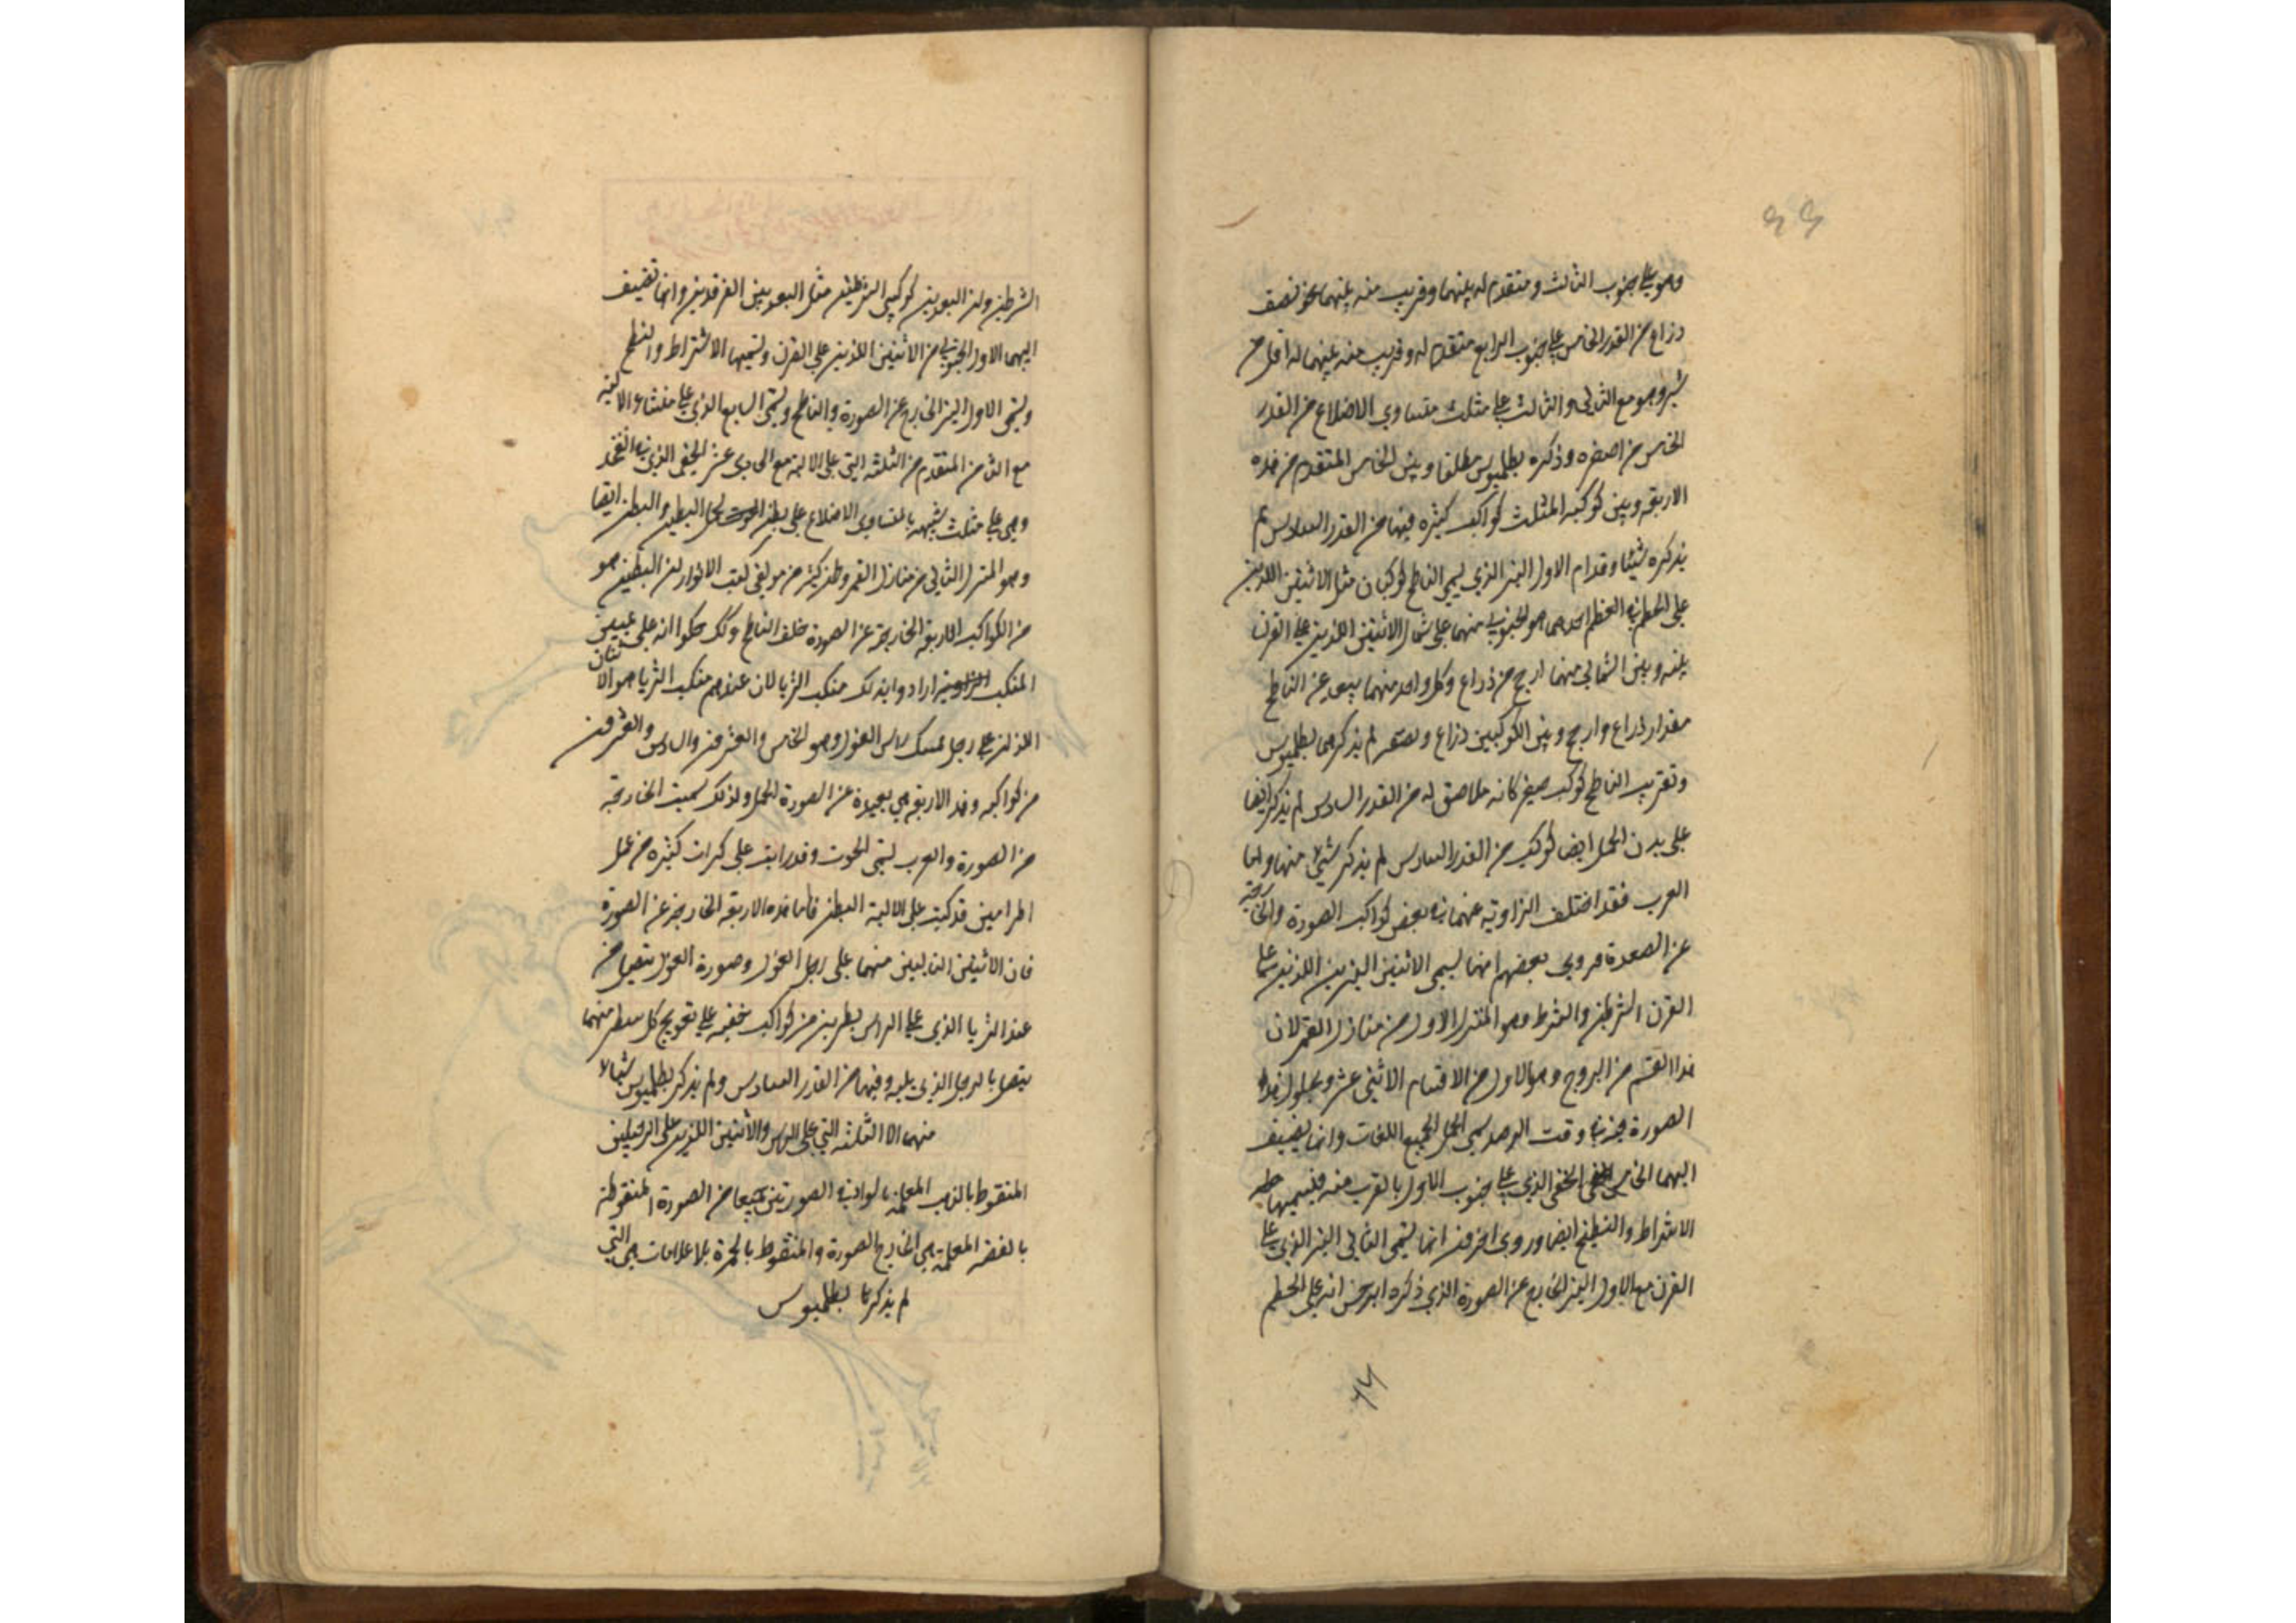 وهو على جنوب الثالث ومتقدم له بينهما وقريب منه بينهما نحو نصف
ذراع من القدر الخامس على جنوب الرابع متقدم له وقريب منه بينهما له اقل من
شبر وهو مع الثاني والثالث على مثلث متساوي الاضلاع من القدر
الخامس من اصغره وذكره بطلميوس مطلقا وبين الخامس المتقدم من هذه
الاربعة وبين كوكبه المثلث كواكب كثيرة فيها من القدر السادس لم
يذكره شيئا وقدام الاول النير الذي يسمى الناطح كوكبان مثل الاثنين اللذين
على الخطم في العظم احدهما هو الجنوبي منهما على شمال الاثنين اللذين على القرن
بينه وبين الشمالي منهما ارجح من ذراع وكل واحد منهما يبعد عن الناطح
مقدار ذراع وارجح وبين الكوكبين ذراع لم يذكرهما بطلميوس
وبقريب الناطح كوكب صغير كانه ملاصق له من القدر السادس لم يذكر ايضا
على بدن الحمل ايضا كواكب من القدر السادس لم يذكر شيئ منها واما
العرب فقد اختلف الرواية عنهما في بعض كواكب الصورة والخارجة
عن الصورة فروى بعضهم انها تسمى الاثنين النيرين اللذين على
القرن الشرطين والشرط وهو المنزل الاول من منازل القمر لان
هذا القسم من البروج وهو الاول من الاقسام الاثني عشر وبحلول هذه
الصورة فيه وقت الرصد سمى الحمل لجميع اللغات وانما يضيف
اليهما الخامس الخفي الذي على جنوب الاول بالقرب منه فيسميها
الاشراط والنطح ايضا وروى اخرون انما تسمى الثاني النير الذي على
القرن مع الاول النير الخارج عن الصورة الذي ذكره ابرخس انه على الخطم
٦٦
الشرطين ولان البعد بين كوكبي الشرطين مثل البعد بين الفرقدين وانها تضيف
اليهما الاول الجنوبي من الاثنين اللذين على القرن وتسميها الاشراط والنطح
وتسمى الاول النير الخارج عن الصورة والناطح وتسمى السابع الذي على منشاء الالية
مع الثامن المتقدم من الثلثة التي على الالية مع الحادي عشر الخفي الذي في الفخذ
وهي على مثلث شبيهه بالمتساوي الاضلاع على بطن الحمل البطين والبطن ايضا
وهو المنزل الثاني من منازل القمر وظن كثير من مولفي كتب الانوار ان البطين هو
من الكواكب الاربعة الخارجة عن الصورة خلف الناطح ولذلك حكوا انه على يمين
المنكب ارادوا بذلك منكب الثريا لان عندهم منكب الثريا هو الاثنان
اللذان على رجل ممسك راس الغول وهو الخامس والعشرون والسادس والعشرون
من كواكبه وهذه الاربعة هي بعيدة عن الصورة الحمل ولذلك سميت الخارجة
من الصورة والعرب تسمى الحوت وقد رايت على كرات كثيرة من عمل
الحرانيين قد كتب على الالية البطن فاما هذه الاربعة الخارجة عن الصورة
فان الاثنين التاليين منهما على رجل الغول وصورة الغول يتصل من
عند الثريا الذي على الراس بسطرين من كواكب خفية على تعويج كل سطر منهما
يتصل بالرجل الذي يليه وفيها من القدر السادس ولم يذكر بطلميوس شيئا
منهما الا الثلثة التي على الراس والاثنين اللذين على الرجلين
المنقوط بالذهب المعلمة بالسواد في الصورتين جميعا من الصورة المنقوطة
بالفضة المعلمة هي الخارج الصورة والمنقوط بالحمرة بلا علامات هي التي
لم يذكرها بطلميوس